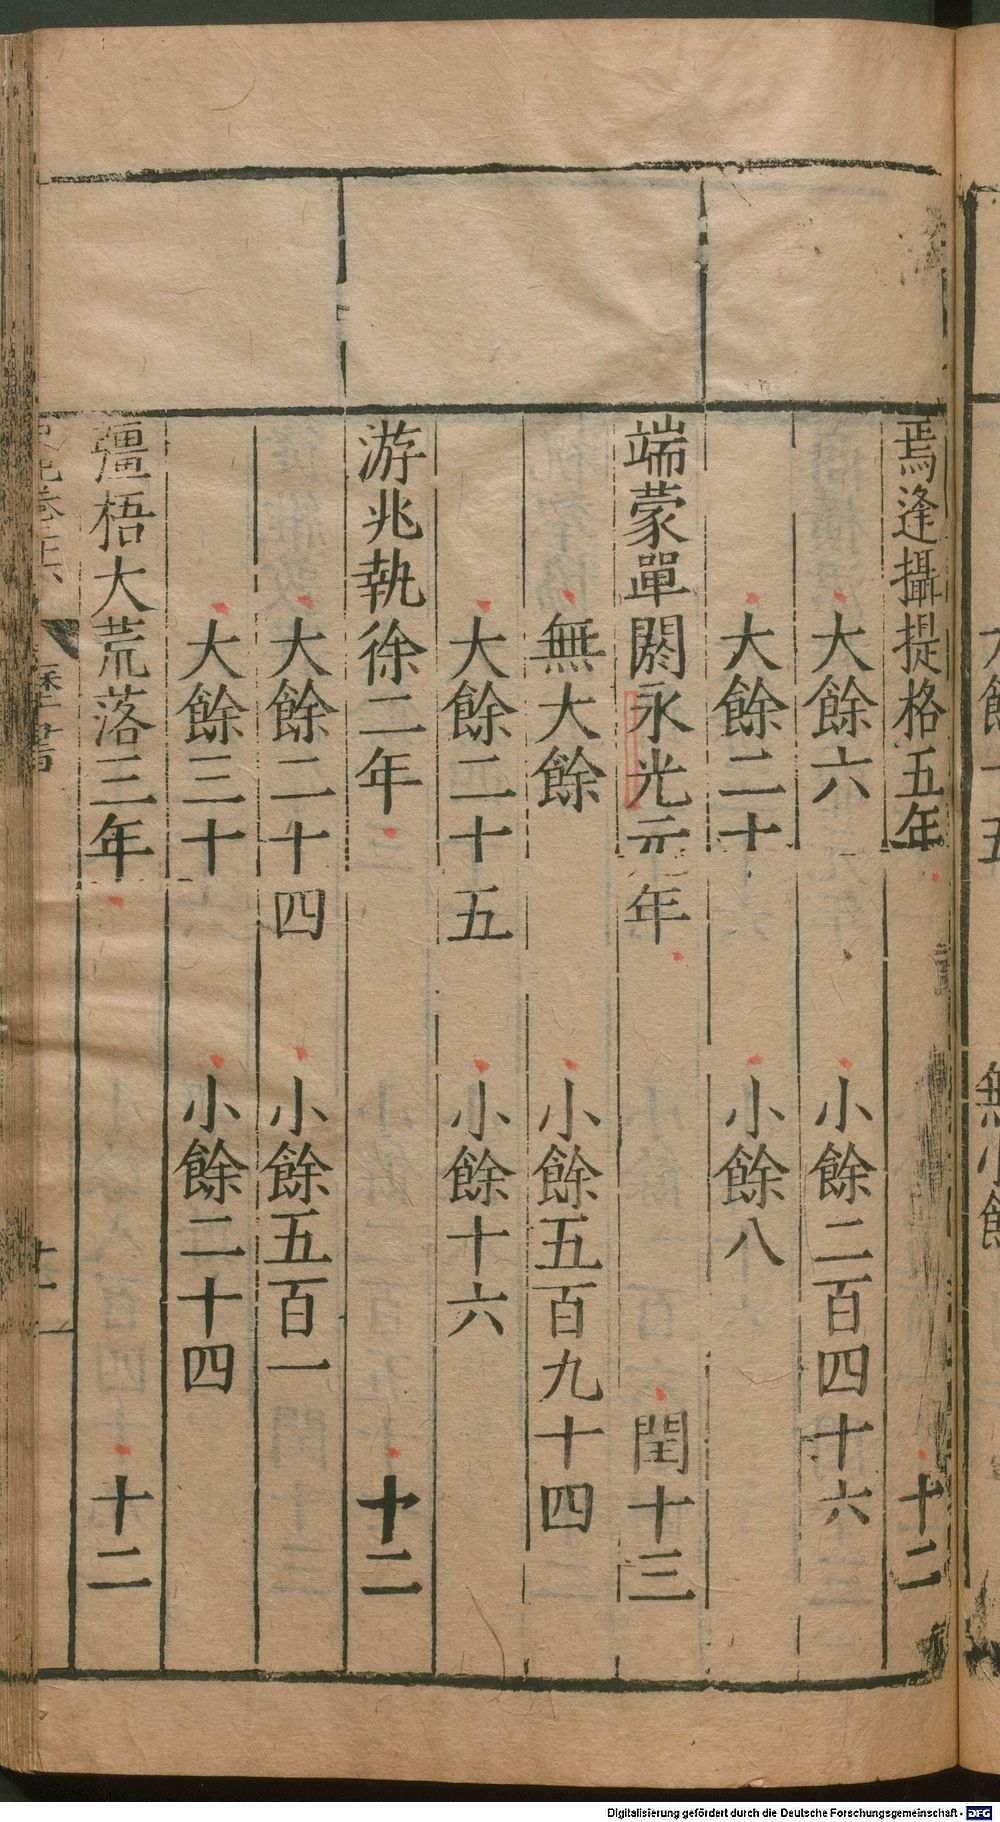 焉逢攝提格五年 十二
大餘六 小餘二百四十六
大餘二十 小餘八
端蒙單閼永光元年 閏十三
無大餘 小餘五百九十四
大餘二十五 小餘十六
游兆執徐二年 十二
大餘二十四 小餘五百一
大餘三十 小餘二十四
彊梧大荒落三年 十二
Digitalisierung gefördert durch die Deutsche Forschungsgemeinschaft - DFG